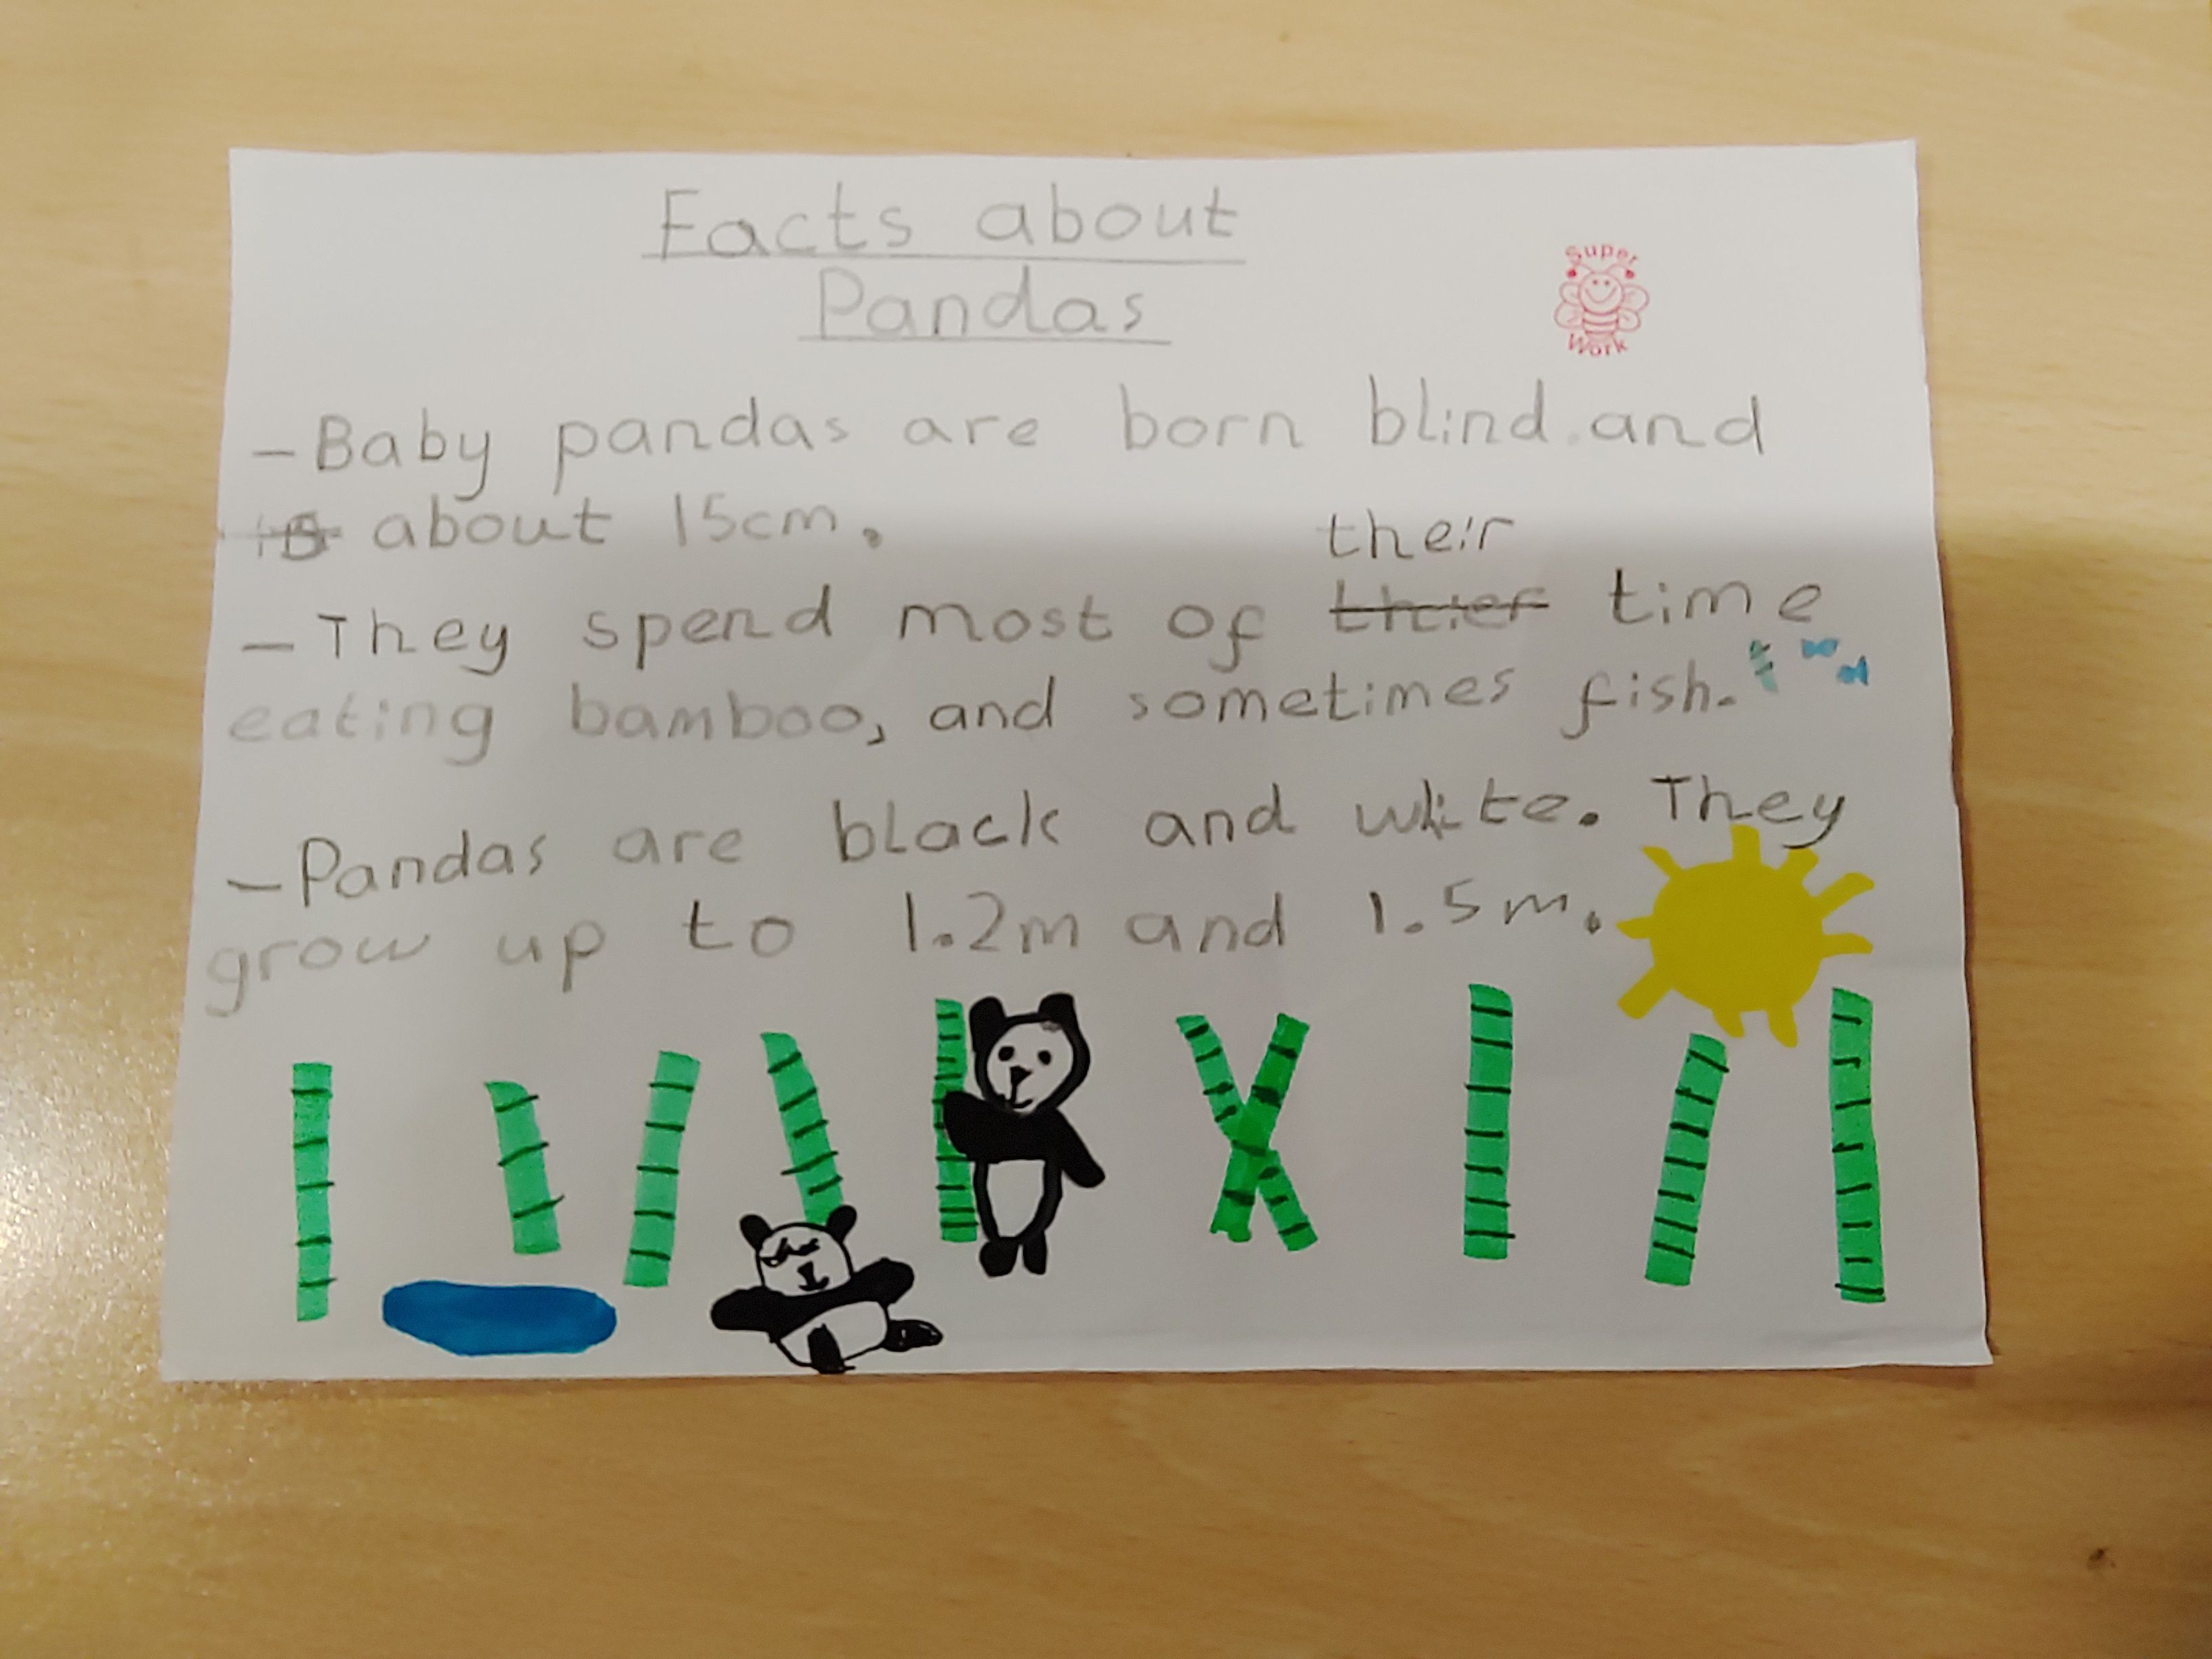 Facts about
Pandas
Super
Work
- Baby pandas are born blind and
about 15cm.
their
- They spend most of thier time
eating bamboo, and sometimes fish.
- Pandas are black and white. They
grow up to 1.2m and 1.5m.